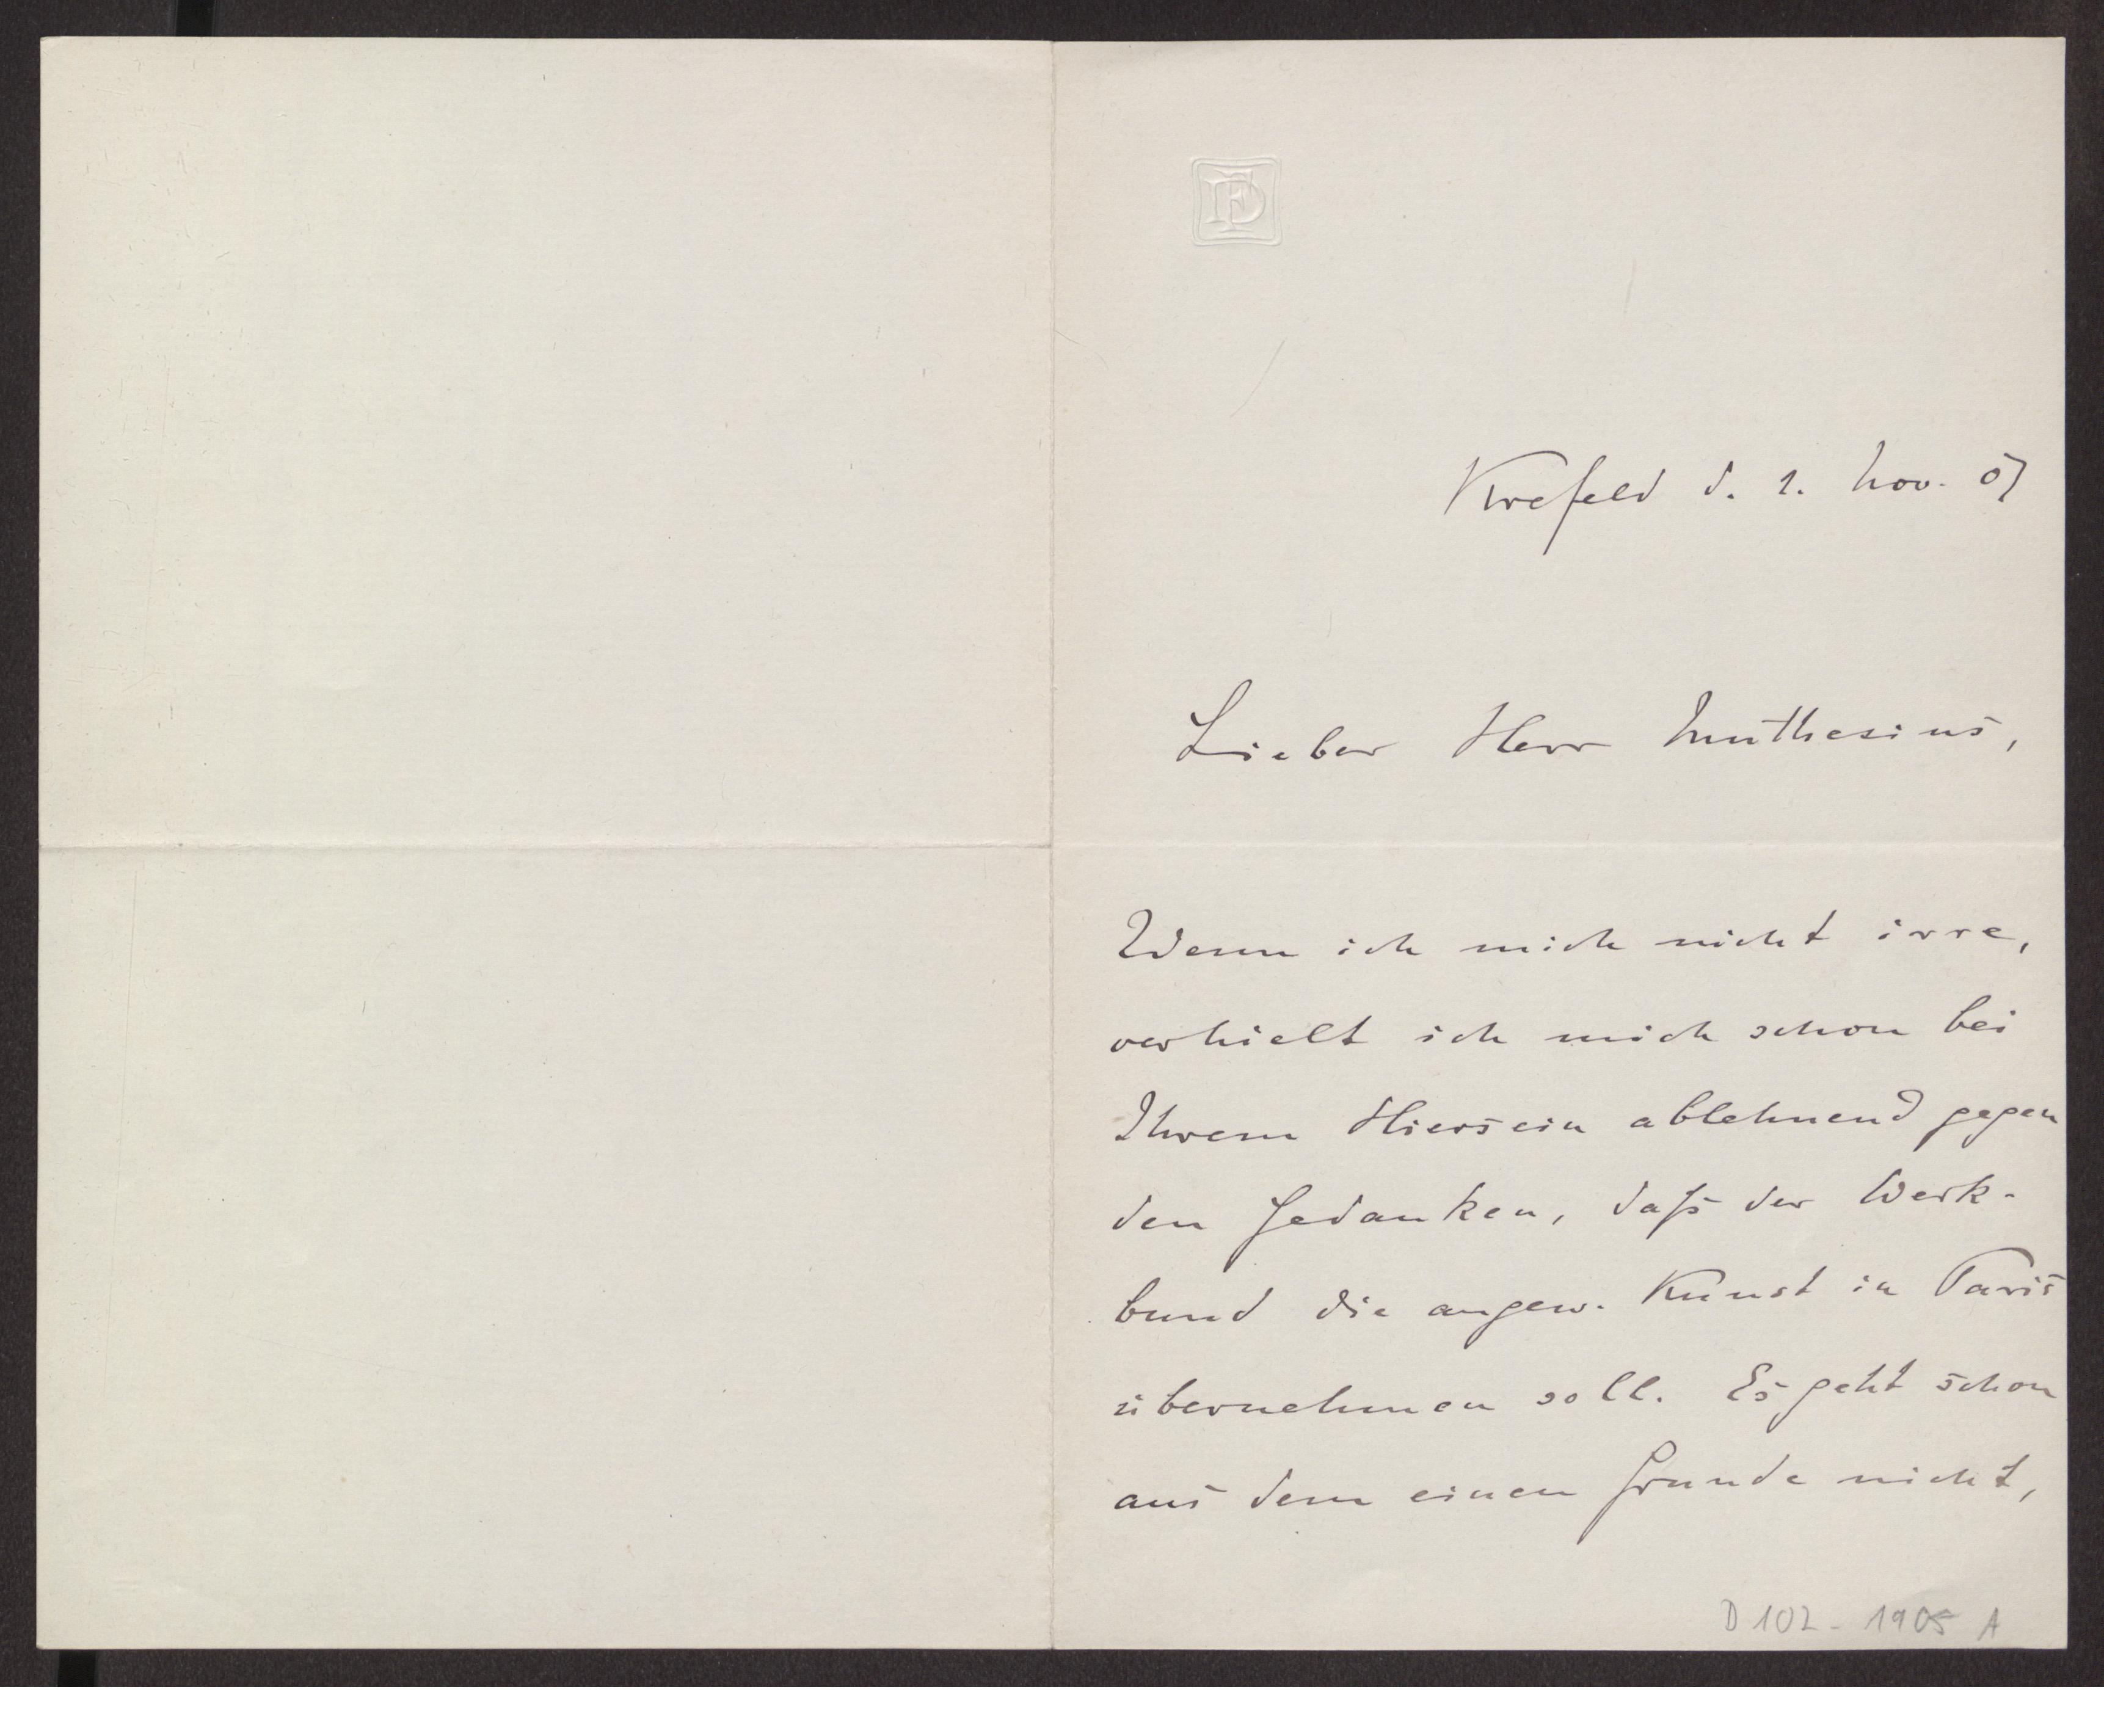 Krefeld d. 2. Nov. 07
Lieber Herr Muthesius,
Wenn ich mich nicht irre,
verhielt ich mich schon bei
Ihrem Hiersein ablehnend gegen
den Gedanken, daß der Werk-
bund die angew. Kunst in Paris
übernehmen soll. Es geht schon
aus dem einen Grunde nicht,
D 102 - 1905 A